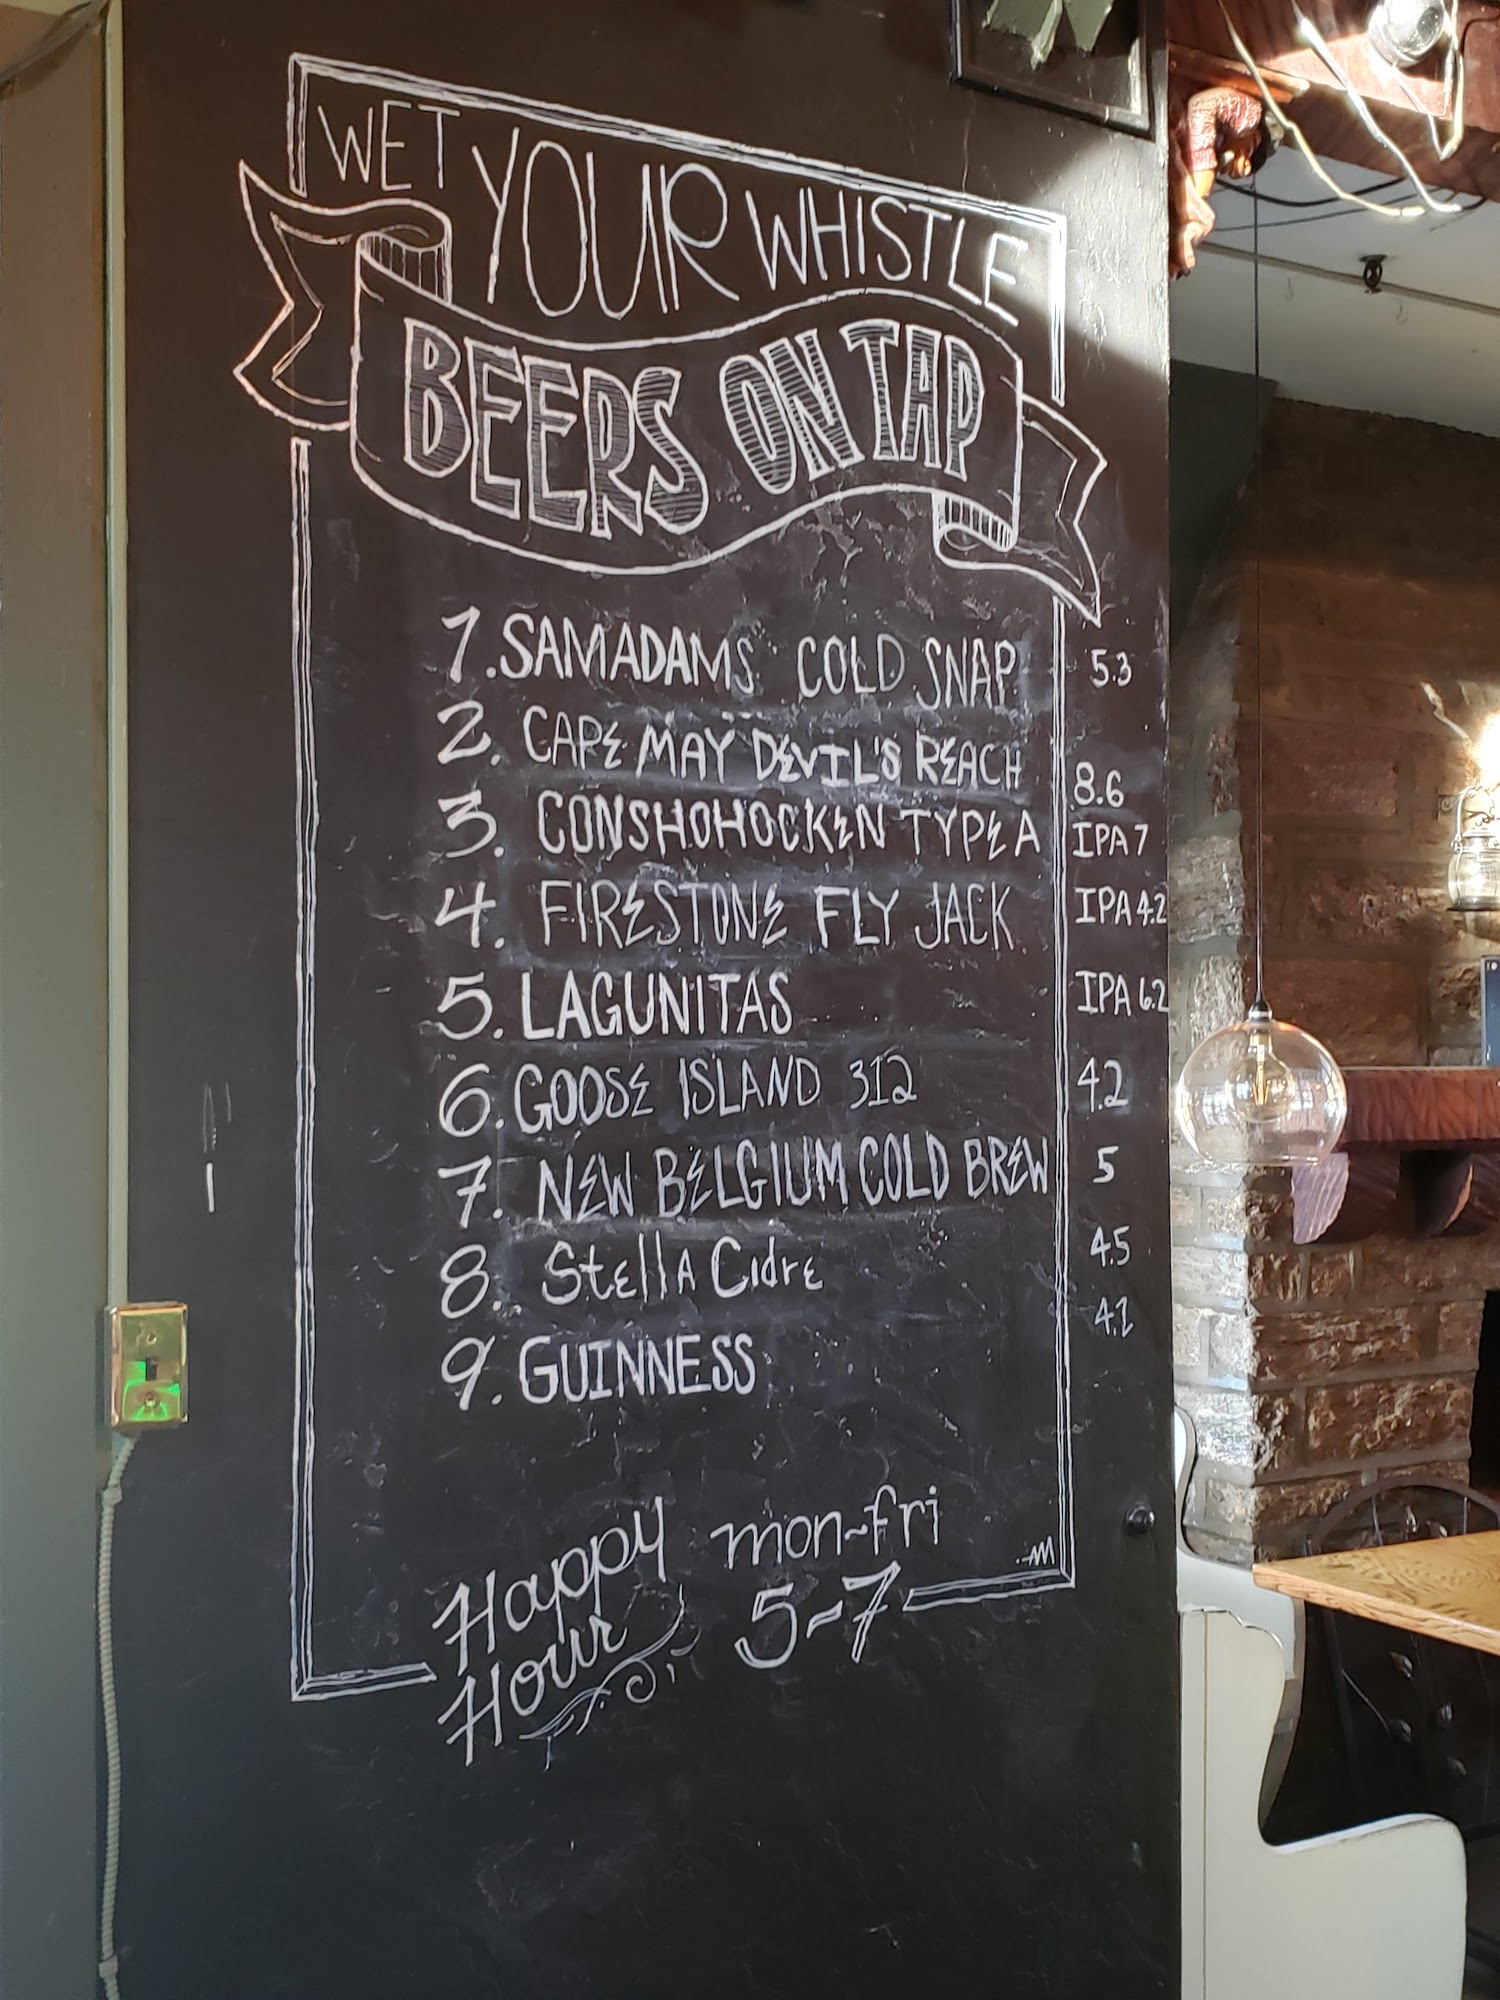 WET YOUR WHISTLE
BEERS ON TAP
1. SAMADAMS COLD SNAP 5.3
2. CAPE MAY DEVIL'S REACH 8.6
3. CONSHOHOCKEN TYPE A IPA 7
4. FIRESTONE FLY JACK IPA 4.2
5. LAGUNITAS IPA 6.2
6. GOOSE ISLAND 312 4.2
7. NEW BELGIUM COLD BREW 5
8. Stella Cidre 4.5
9. GUINNESS 4.2
Happy Hour mon-fri
5-7